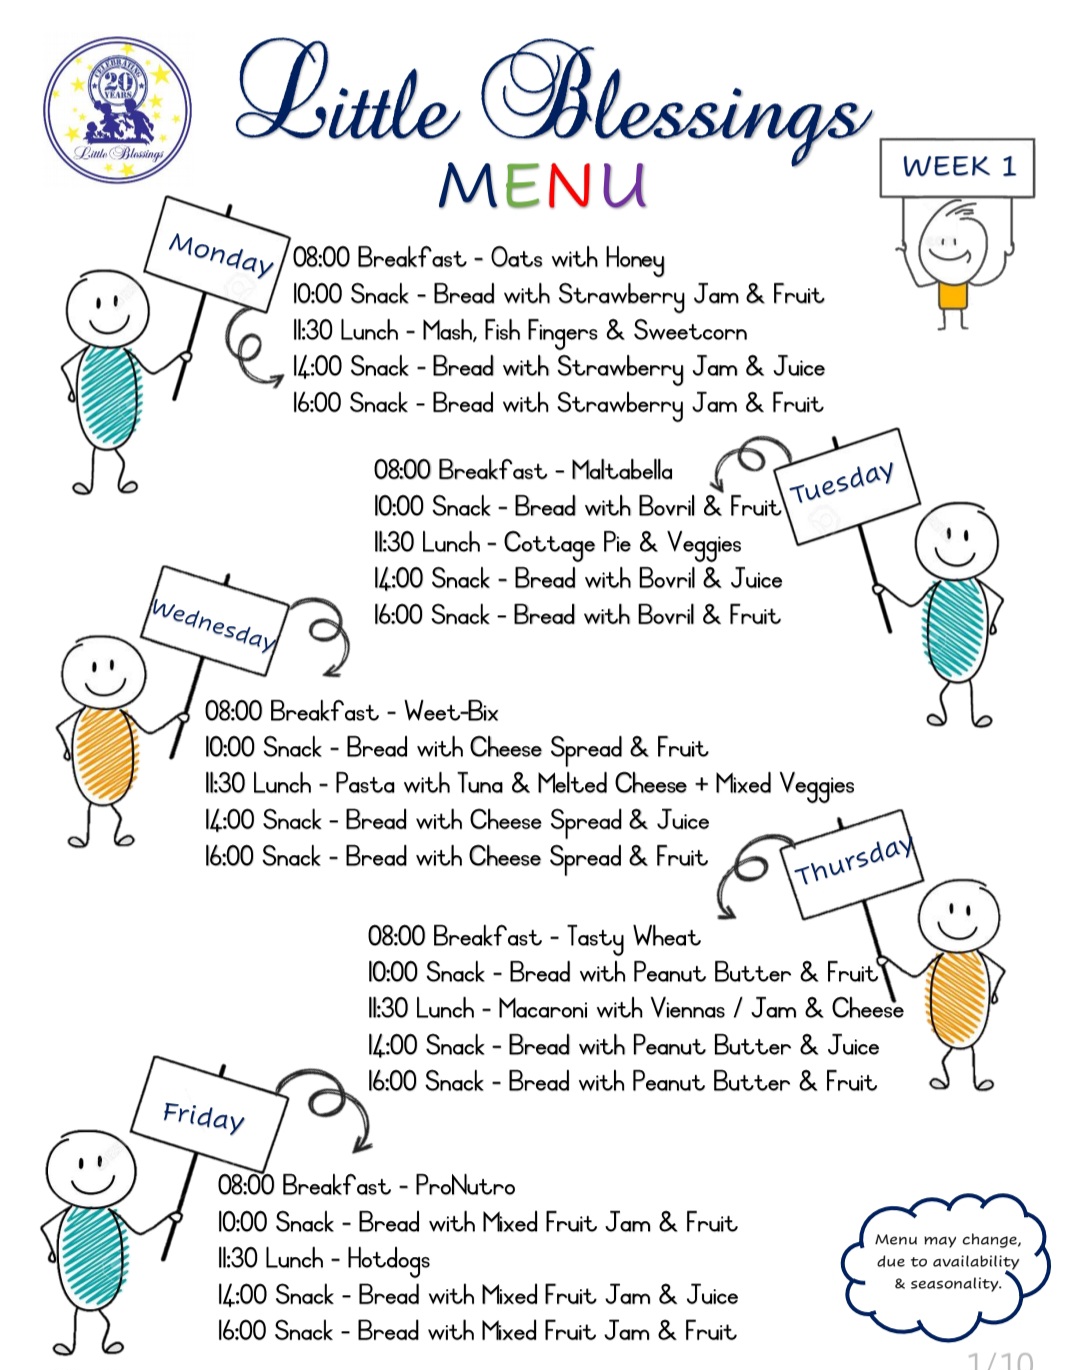 CELEBRATING
20
YEARS
Little Blessings
Little Blessings
MENU
WEEK 1
Monday
08:00 Breakfast - Oats with Honey
10:00 Snack - Bread with Strawberry Jam & Fruit
11:30 Lunch - Mash, Fish Fingers & Sweetcorn
14:00 Snack - Bread with Strawberry Jam & Juice
16:00 Snack - Bread with Strawberry Jam & Fruit
Tuesday
08:00 Breakfast - Maltabella
10:00 Snack - Bread with Bovril & Fruit
11:30 Lunch - Cottage Pie & Veggies
14:00 Snack - Bread with Bovril & Juice
16:00 Snack - Bread with Bovril & Fruit
Wednesday
08:00 Breakfast - Weet-Bix
10:00 Snack - Bread with Cheese Spread & Fruit
11:30 Lunch - Pasta with Tuna & Melted Cheese + Mixed Veggies
14:00 Snack - Bread with Cheese Spread & Juice
16:00 Snack - Bread with Cheese Spread & Fruit
Thursday
08:00 Breakfast - Tasty Wheat
10:00 Snack - Bread with Peanut Butter & Fruit
11:30 Lunch - Macaroni with Viennas / Jam & Cheese
14:00 Snack - Bread with Peanut Butter & Juice
16:00 Snack - Bread with Peanut Butter & Fruit
Friday
08:00 Breakfast - ProNutro
10:00 Snack - Bread with Mixed Fruit Jam & Fruit
11:30 Lunch - Hotdogs
14:00 Snack - Bread with Mixed Fruit Jam & Juice
16:00 Snack - Bread with Mixed Fruit Jam & Fruit
Menu may change,
due to availability
& seasonality.
1/10